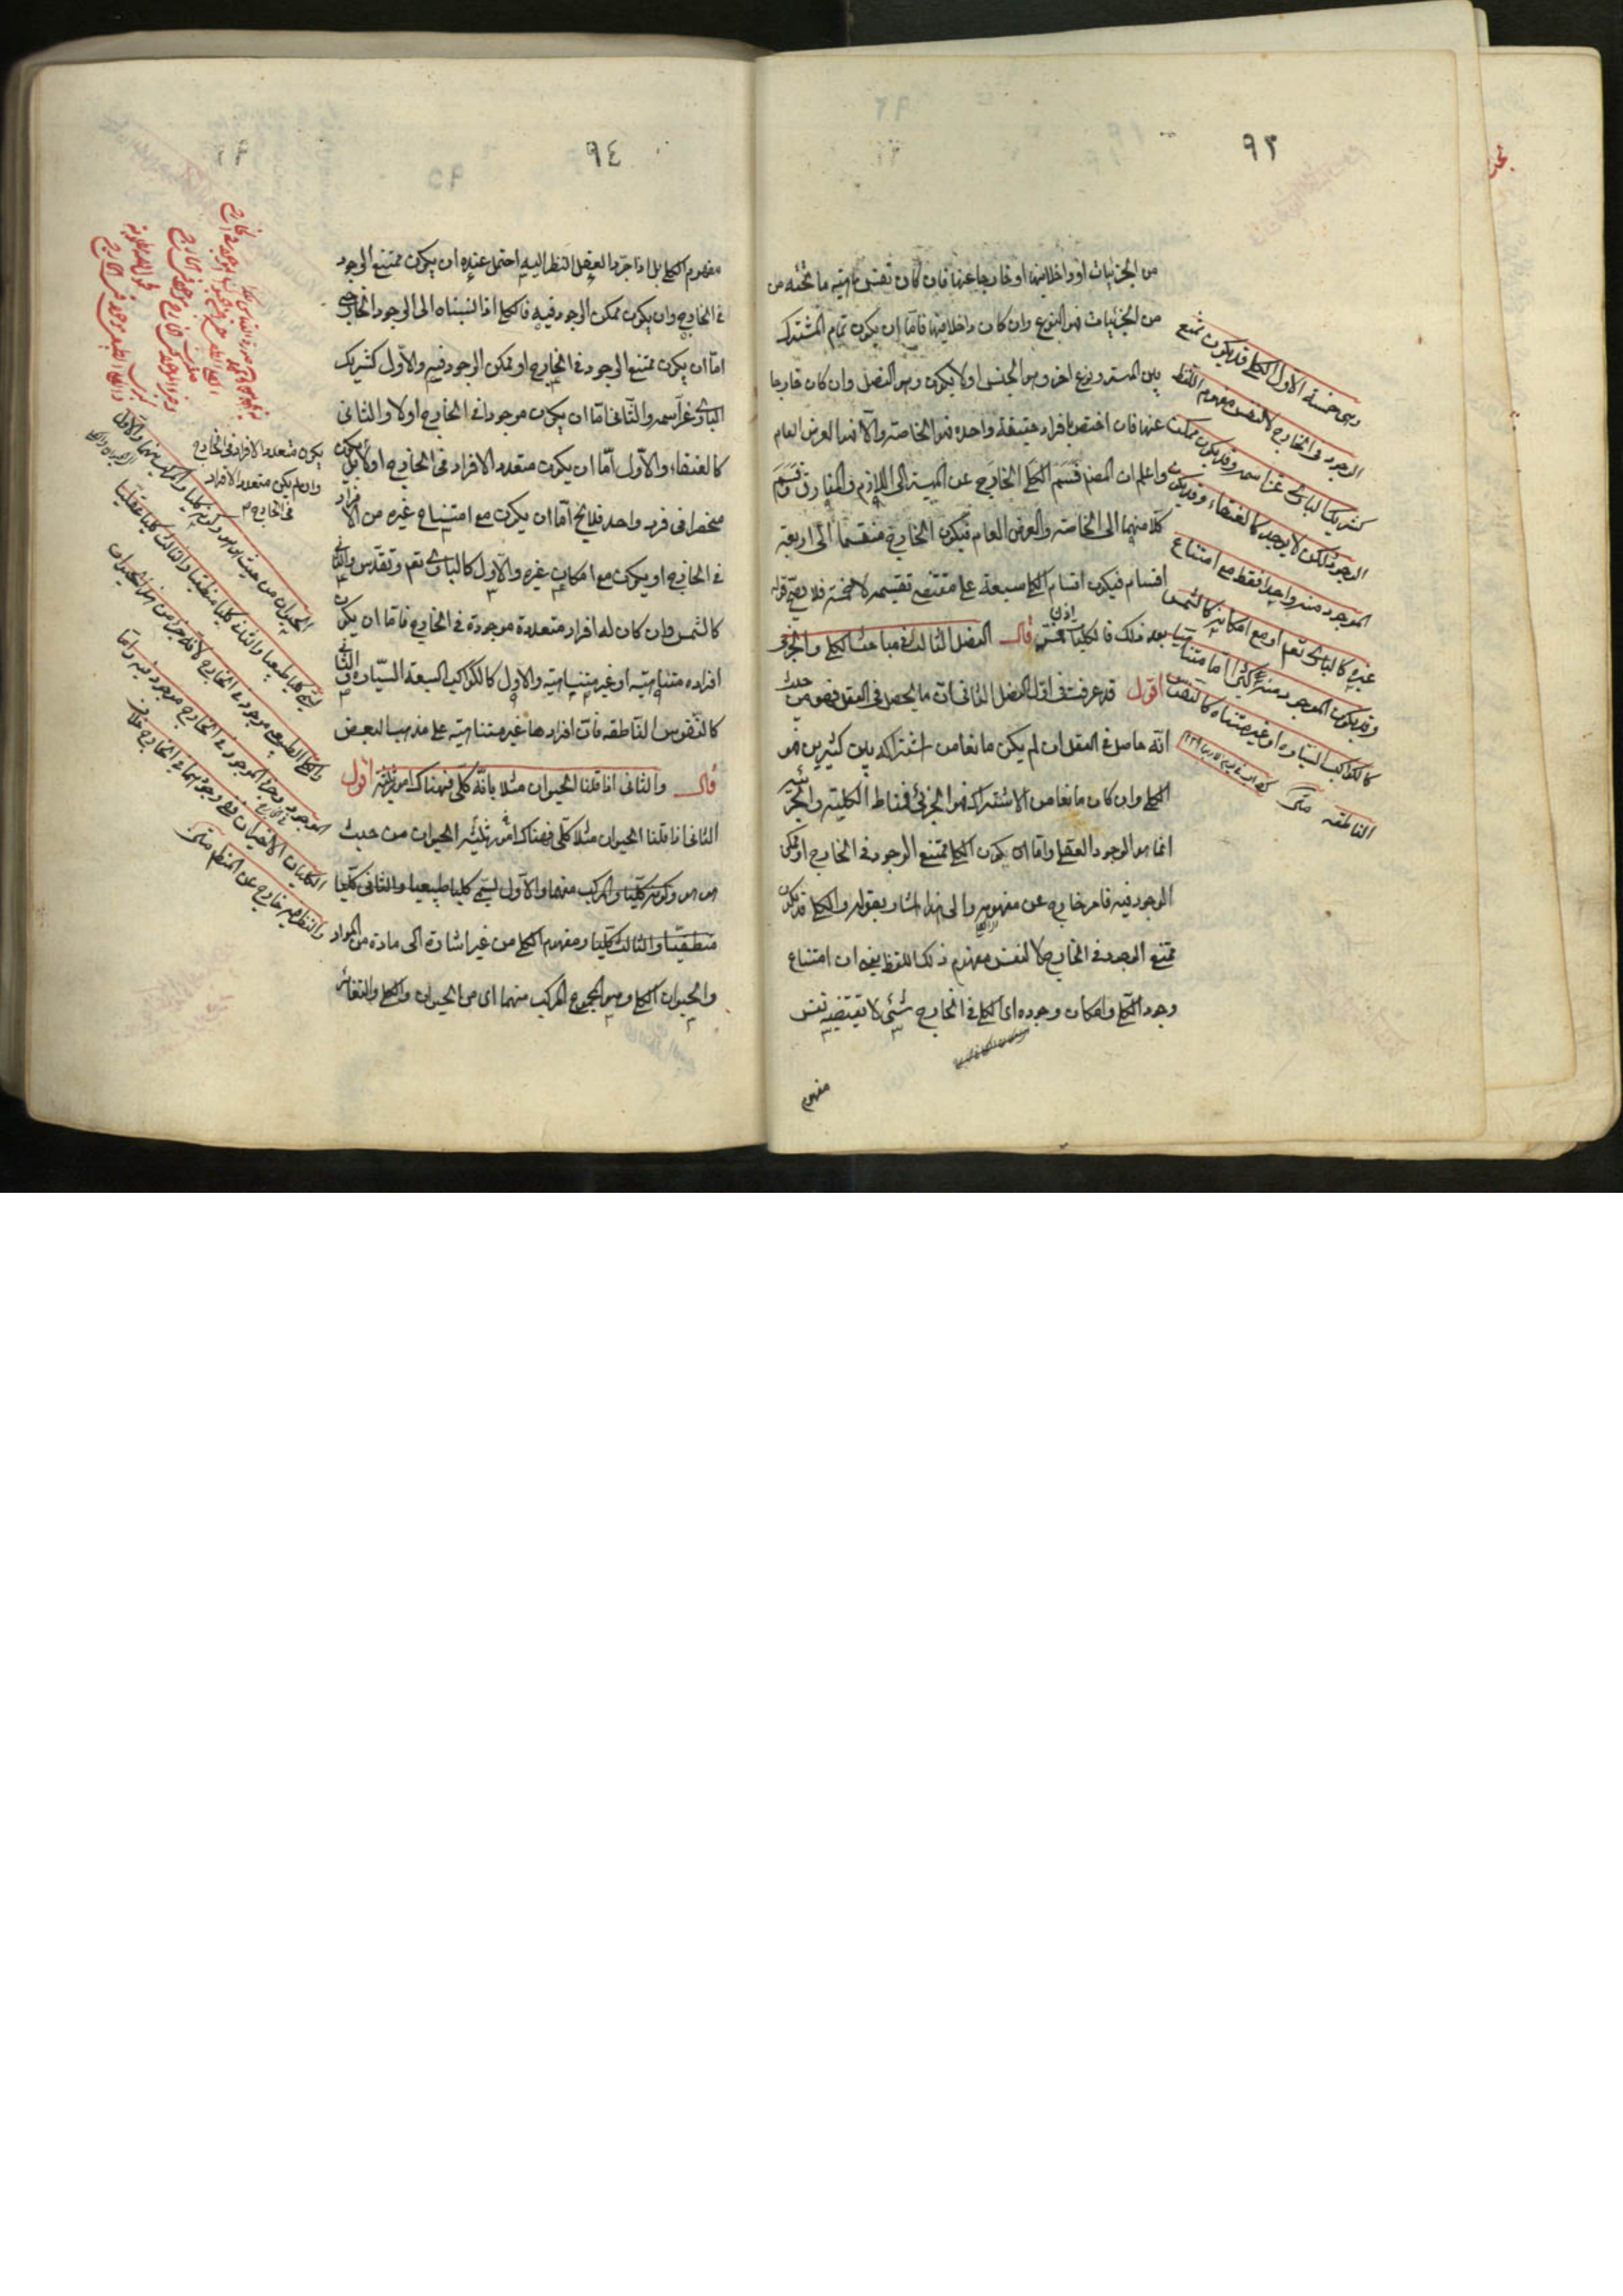 ٩٣
من الجزئيات او داخلا فيها او خارجا عنها فان كان نفس ماهية ما تحته من
من الجزئيات فهو النوع وان كان داخلا فيها فاما ان يكون تمام المشترك
بين الماهية ونوع اخر وهو الجنس اولا يكون وهو الفصل وان كان خارجا
عنها فان اختص بافراد حقيقة واحدة فهو الخاصة والا فهو العرض العام
واعلم ان المصنف قسم الكلي الخارج عن الماهية الى اللازم والمفارق وقسم
كلا منهما الى الخاصة والعرض العام فيكون الخارج منقسما الى اربعة
اقسام فيكون اقسام الكلي سبعة على مقتضى تقسيمه لا خمسة فلا يصح قوله
بعد ذلك فالكليات اذن خمس قال الفصل الثالث في مباحث الكلي والجزئي
اقول قد عرفت في اول الفصل الثاني ان ما يحصل في العقل فهو من حيث
انه حاصل في العقل ان لم يكن مانعا من اشتراكه بين كثيرين فهو
الكلي وان كان مانعا من الاشتراك فهو الجزئي فمناط الكلية والجزئية
انما هو الوجود العقلي واما ان يكون الكلي ممتنع الوجود في الخارج او ممكن
الوجود فيه فامر خارج عن مفهومه والى هذا اشار بقوله والكلي قد يكون
ممتنع الوجود في الخارج لا لنفس مفهوم ذلك اللفظ يعني ان امتناع
وجود الكلي وامكان وجوده اي الكلي في الخارج شئ لا تقتضيه نفس
مفهوم
وهي خمسة الاول الكلي قد يكون ممتنع
الوجود في الخارج لا لنفس مفهوم اللفظ
كشريك الباري عز اسمه وقد يكون ممكن
الوجود ولكن لا يوجد كالعنقاء وقد يكون
الموجود منه واحدا فقط مع امتناع
غيره كالباري تعالى او مع امكانه كالشمس
وقد يكون الموجود منه كثيرا اما متناهيا
كالكواكب السيارة او غير متناه كالنفوس
الناطقة متن
٩٤
مفهوم الكلي بل اذا جرد العقل النظر اليه احتمل عنده ان يكون ممتنع الوجود
في الخارج وان يكون ممكن الوجود فيه فالكلي اذا نسبناه الى الوجود الخارجي
اما ان يكون ممتنع الوجود في الخارج او ممكن الوجود فيه والاول كشريك
الباري عز اسمه والثاني اما ان يكون موجودا في الخارج اولا والثاني
كالعنقاء والاول اما ان يكون متعدد الافراد في الخارج اولا يكون
منحصرا في فرد واحد فلا يخ اما ان يكون مع امتناع غيره من الافراد
في الخارج او يكون مع امكان غيره والاول كالباري تعم وتقدس والثاني
كالشمس وان كان له افراد متعددة موجودة في الخارج فاما ان يكون
افراده متناهية او غير متناهية والاول كالكواكب السبعة السيارة والثاني
كالنفوس الناطقة فان افرادها غير متناهية على مذهب البعض
قال والثاني اذا قلنا للحيوان مثلا بانه كلي فهناك امور ثلثة اقول
الثاني اذا قلنا الحيوان مثلا كلي فهناك امور ثلثة الحيوان من حيث
هو هو وكونه كليا والمركب منهما والاول يسمى كليا طبيعيا والثاني كليا
منطقيا والثالث كليا ومفهوم الكلي من غير اشارة الى مادة من المواد
والحيوان الكلي وهو المجموع المركب منهما اي من الحيوان والكلي والتغاير
يكون متعدد الافراد في الخارج
وان لم يكن متعدد الافراد
في الخارج
الحيوان من حيث هو هو وكونه كليا والمركب منهما والاول
يسمى كليا طبيعيا والثاني كليا منطقيا والثالث كليا عقليا
والكلي الطبيعي موجود في الخارج لانه جزء من هذا الحيوان
الموجود وجزء الموجود في الخارج موجود فيه واما
الكليان الاخيران ففي وجودهما في الخارج خلاف
والنظر فيه خارج عن المنطق متن